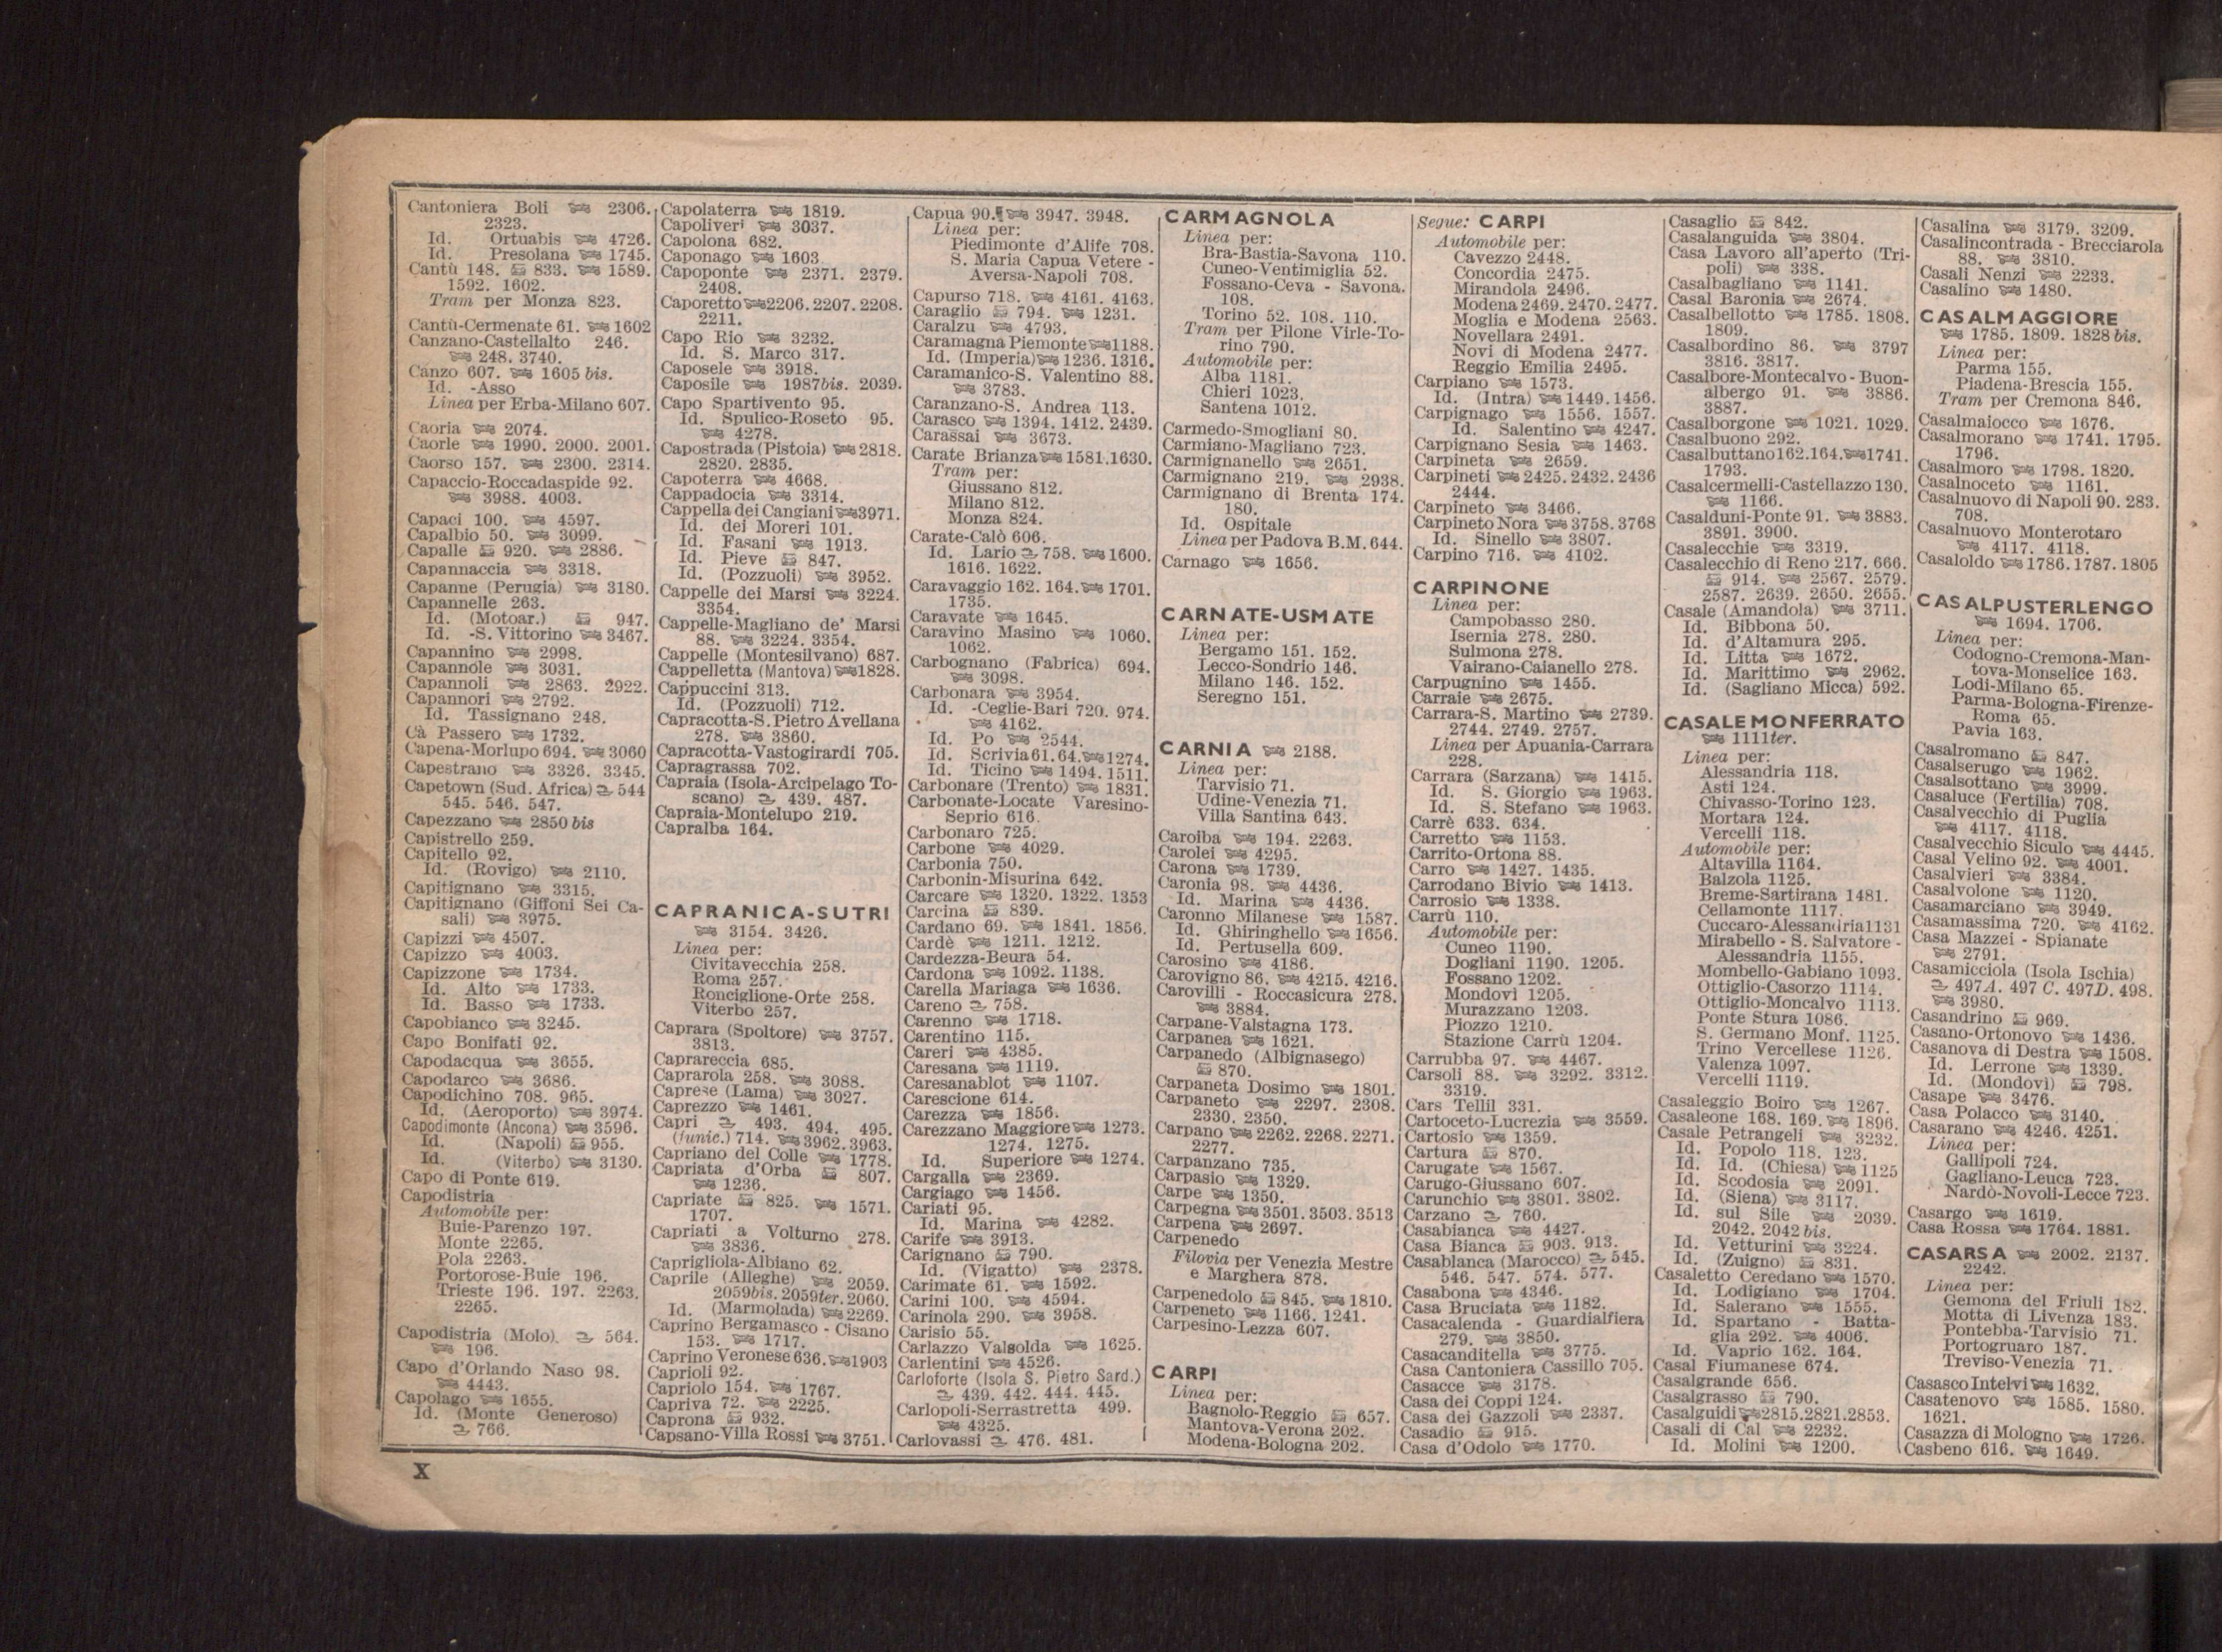 Cantoniera Boli 2306.
2323.
Id. Ortuabis 4726.
Id. Presolana 1745.
Cantù 148. 833. 1589.
1592. 1602.
Tram per Monza 823.
Cantù-Cermenate 61. 1602
Canzano-Castellalto 246.
248. 3740.
Canzo 607. 1605 bis.
Id. -Asso
Linea per Erba-Milano 607.
Caoria 2074.
Caorle 1990. 2000. 2001.
Caorso 157. 2300. 2314.
Capaccio-Roccadaspide 92.
3988. 4003.
Capaci 100. 4597.
Capalbio 50. 3099.
Capalle 920. 2886.
Capannaccia 3318.
Capanne (Perugia) 3180.
Capannelle 263.
Id. (Motoar.) 947.
Id. -S. Vittorino 3467.
Capannino 2998.
Capannole 3031.
Capannoli 2863. 2922.
Capannori 2792.
Id. Tassignano 248.
Cà Passero 1732.
Capena-Morlupo 694. 3060
Capestrano 3326. 3345.
Capetown (Sud. Africa) 544
545. 546. 547.
Capezzano 2850 bis
Capistrello 259.
Capitello 92.
Id. (Rovigo) 2110.
Capitignano 3315.
Capitignano (Giffoni Sei Ca-
sali) 3975.
Capizzi 4507.
Capizzo 4003.
Capizzone 1734.
Id. Alto 1733.
Id. Basso 1733.
Capobianco 3245.
Capo Bonifati 92.
Capodacqua 3655.
Capodarco 3686.
Capodichino 708. 965.
Id. (Aeroporto) 3974.
Capodimonte (Ancona) 3596.
Id. (Napoli) 955.
Id. (Viterbo) 3130.
Capo di Ponte 619.
Capodistria
Automobile per:
Buie-Parenzo 197.
Monte 2265.
Pola 2263.
Portorose-Buie 196.
Trieste 196. 197. 2263.
2265.
Capodistria (Molo). 564.
196.
Capo d'Orlando Naso 98.
4443.
Capolago 1655.
Id. (Monte Generoso)
766.
Capolaterra 1819.
Capoliveri 3037.
Capolona 682.
Caponago 1603.
Capoponte 2371. 2379.
2408.
Caporetto 2206. 2207. 2208.
2211.
Capo Rio 3232.
Id. S. Marco 317.
Caposele 3918.
Caposile 1987bis. 2039.
Capo Spartivento 95.
Id. Spulico-Roseto 95.
4278.
Capostrada (Pistoia) 2818.
2820. 2835.
Capoterra 4668.
Cappadocia 3314.
Cappella dei Cangiani 3971.
Id. dei Moreri 101.
Id. Fasani 1913.
Id. Pieve 847.
Id. (Pozzuoli) 3952.
Cappelle dei Marsi 3224.
3354.
Cappelle-Magliano de' Marsi
88. 3224. 3354.
Cappelle (Montesilvano) 687.
Cappelletta (Mantova) 1828.
Cappuccini 313.
Id. (Pozzuoli) 712.
Capracotta-S. Pietro Avellana
278. 3860.
Capracotta-Vastogirardi 705.
Capragrassa 702.
Capraia (Isola-Arcipelago To-
scano) 439. 487.
Capraia-Montelupo 219.
Capralba 164.
CAPRANICA-SUTRI
3154. 3426.
Linea per:
Civitavecchia 258.
Roma 257.
Ronciglione-Orte 258.
Viterbo 257.
Caprara (Spoltore) 3757.
3813.
Caprareccia 685.
Caprarola 258. 3088.
Caprese (Lama) 3027.
Caprezzo 1461.
Capri 493. 494. 495.
(funic.) 714. 3962. 3963.
Capriano del Colle 1778.
Capriata d'Orba 807.
1236.
Capriate 825. 1571.
1707.
Capriati a Volturno 278.
3836.
Caprigliola-Albiano 62.
Caprile (Alleghe) 2059.
2059bis. 2059ter. 2060.
Id. (Marmolada) 2269.
Caprino Bergamasco - Cisano
153. 1717.
Caprino Veronese 636. 1903
Caprioli 92.
Capriolo 154. 1767.
Capriva 72. 2225.
Caprona 932.
Capsano-Villa Rossi 3751.
Capua 90. 3947. 3948.
Linea per:
Piedimonte d'Alife 708.
S. Maria Capua Vetere -
Aversa-Napoli 708.
Capurso 718. 4161. 4163.
Caraglio 794. 1231.
Caralzu 4793.
Caramagna Piemonte 1188.
Id. (Imperia) 1236. 1316.
Caramanico-S. Valentino 88.
3783.
Caranzano-S. Andrea 113.
Carasco 1394. 1412. 2439.
Carassai 3673.
Carate Brianza 1581. 1630.
Tram per:
Giussano 812.
Milano 812.
Monza 824.
Carate-Calò 606.
Id. Lario 758. 1600.
1616. 1622.
Caravaggio 162. 164. 1701.
1735.
Caravate 1645.
Caravino Masino 1060.
1062.
Carbognano (Fabrica) 694.
3098.
Carbonara 3954.
Id. -Ceglie-Bari 720. 974.
4162.
Id. Po 2544.
Id. Scrivia 61. 64. 1274.
Id. Ticino 1494. 1511.
Carbonare (Trento) 1831.
Carbonate-Locate Varesino-
Seprio 616.
Carbonaro 725.
Carbone 4029.
Carbonia 750.
Carbonin-Misurina 642.
Carcare 1320. 1322. 1353
Carcina 839.
Cardano 69. 1841. 1856.
Cardè 1211. 1212.
Cardezza-Beura 54.
Cardona 1092. 1138.
Carella Mariaga 1636.
Careno 758.
Carenno 1718.
Carentino 115.
Careri 4385.
Caresana 1119.
Caresanablot 1107.
Carescione 614.
Carezza 1856.
Carezzano Maggiore 1273.
1274. 1275.
Id. Superiore 1274.
Cargalla 2369.
Cargiago 1456.
Cariati 95.
Id. Marina 4282.
Carife 3913.
Carignano 790.
Id. (Vigatto) 2378.
Carimate 61. 1592.
Carini 100. 4594.
Carinola 290. 3958.
Carisio 55.
Carlazzo Valsolda 1625.
Carlentini 4526.
Carloforte (Isola S. Pietro Sard.)
439. 442. 444. 445.
Carlopoli-Serrastretta 499.
4325.
Carlovassi 476. 481.
CARMAGNOLA
Linea per:
Bra-Bastia-Savona 110.
Cuneo-Ventimiglia 52.
Fossano-Ceva - Savona.
108.
Torino 52. 108. 110.
Tram per Pilone Virle-To-
rino 790.
Automobile per:
Alba 1181.
Chieri 1023.
Santena 1012.
Carmedo-Smogliani 80.
Carmiano-Magliano 723.
Carmignanello 2651.
Carmignano 219. 2938.
Carmignano di Brenta 174.
180.
Id. Ospitale
Linea per Padova B.M. 644.
Carnago 1656.
CARNATE-USMATE
Linea per:
Bergamo 151. 152.
Lecco-Sondrio 146.
Milano 146. 152.
Seregno 151.
CARNIA 2188.
Linea per:
Tarvisio 71.
Udine-Venezia 71.
Villa Santina 643.
Caroiba 194. 2263.
Carolei 4295.
Carona 1739.
Caronia 98. 4436.
Id. Marina 4436.
Caronno Milanese 1587.
Id. Ghiringhello 1656.
Id. Pertusella 609.
Carosino 4186.
Carovigno 86. 4215. 4216.
Carovilli - Roccasicura 278.
3884.
Carpane-Valstagna 173.
Carpanea 1621.
Carpanedo (Albignasego)
870.
Carpaneta Dosimo 1801.
Carpaneto 2297. 2308.
2330. 2350.
Carpano 2262. 2268. 2271.
2277.
Carpanzano 735.
Carpasio 1329.
Carpe 1350.
Carpegna 3501. 3503. 3513
Carpena 2697.
Carpenedo
Filovia per Venezia Mestre
e Marghera 878.
Carpenedolo 845. 1810.
Carpeneto 1166. 1241.
Carpesino-Lezza 607.
CARPI
Linea per:
Bagnolo-Reggio 657.
Mantova-Verona 202.
Modena-Bologna 202.
Segue: CARPI
Automobile per:
Cavezzo 2448.
Concordia 2475.
Mirandola 2496.
Modena 2469. 2470. 2477.
Moglia e Modena 2563.
Novellara 2491.
Novi di Modena 2477.
Reggio Emilia 2495.
Carpiano 1573.
Id. (Intra) 1449. 1456.
Carpignago 1556. 1557.
Id. Salentino 4247.
Carpignano Sesia 1463.
Carpineta 2659.
Carpineti 2425. 2432. 2436
2444.
Carpineto 3466.
Carpineto Nora 3758. 3768
Id. Sinello 3807.
Carpino 716. 4102.
CARPINONE
Linea per:
Campobasso 280.
Isernia 278. 280.
Sulmona 278.
Vairano-Caianello 278.
Carpugnino 1455.
Carraie 2675.
Carrara-S. Martino 2739.
2744. 2749. 2757.
Linea per Apuania-Carrara
228.
Carrara (Sarzana) 1415.
Id. S. Giorgio 1963.
Id. S. Stefano 1963.
Carrè 633. 634.
Carretto 1153.
Carrito-Ortona 88.
Carro 1427. 1435.
Carrodano Bivio 1413.
Carrosio 1338.
Carrù 110.
Automobile per:
Cuneo 1190.
Dogliani 1190. 1205.
Fossano 1202.
Mondovì 1205.
Murazzano 1203.
Piozzo 1210.
Stazione Carrù 1204.
Carrubba 97. 4467.
Carsoli 88. 3292. 3312.
3319.
Cars Tellil 331.
Cartoceto-Lucrezia 3559.
Cartosio 1359.
Cartura 870.
Carugate 1567.
Carugo-Giussano 607.
Carunchio 3801. 3802.
Carzano 760.
Casabianca 4427.
Casa Bianca 903. 913.
Casablanca (Marocco) 545.
546. 547. 574. 577.
Casabona 4346.
Casa Bruciata 1182.
Casacalenda - Guardialfiera
279. 3850.
Casacanditella 3775.
Casa Cantoniera Cassillo 705.
Casacce 3178.
Casa dei Coppi 124.
Casa dei Gazzoli 2337.
Casadio 915.
Casa d'Odolo 1770.
Casaglio 842.
Casalanguida 3804.
Casa Lavoro all'aperto (Tri-
poli) 338.
Casalbagliano 1141.
Casal Baronia 2674.
Casalbellotto 1785. 1808.
1809.
Casalbordino 86. 3797
3816. 3817.
Casalbore-Montecalvo - Buon-
albergo 91. 3886.
3887.
Casalborgone 1021. 1029.
Casalbuono 292.
Casalbuttano 162. 164. 1741.
1793.
Casalcermelli-Castellazzo 130.
1166.
Casalduni-Ponte 91. 3883.
3891. 3900.
Casalecchie 3319.
Casalecchio di Reno 217. 666.
914. 2567. 2579.
2587. 2639. 2650. 2655.
Casale (Amandola) 3711.
Id. Bibbona 50.
Id. d'Altamura 295.
Id. Litta 1672.
Id. Marittimo 2962.
Id. (Sagliano Micca) 592.
CASALE MONFERRATO
1111ter.
Linea per:
Alessandria 118.
Asti 124.
Chivasso-Torino 123.
Mortara 124.
Vercelli 118.
Automobile per:
Altavilla 1164.
Balzola 1125.
Breme-Sartirana 1481.
Cellamonte 1117.
Cuccaro-Alessandria 1131
Mirabello - S. Salvatore -
Alessandria 1155.
Mombello-Gabiano 1093.
Ottiglio-Casorzo 1114.
Ottiglio-Moncalvo 1113.
Ponte Stura 1086.
S. Germano Monf. 1125.
Trino Vercellese 1126.
Valenza 1097.
Vercelli 1119.
Casaleggio Boiro 1267.
Casaleone 168. 169. 1896.
Casale Petrangeli 3232.
Id. Popolo 118. 123.
Id. Id. (Chiesa) 1125
Id. Scodosia 2091.
Id. (Siena) 3117.
Id. sul Sile 2039.
2042. 2042 bis.
Id. Vetturini 3224.
Id. (Zuigno) 831.
Casaletto Ceredano 1570.
Id. Lodigiano 1704.
Id. Salerano 1555.
Id. Spartano - Batta-
glia 292. 4006.
Id. Vaprio 162. 164.
Casal Fiumanese 674.
Casalgrande 656.
Casalgrasso 790.
Casalguidi 2815. 2821. 2853.
Casali di Cal 2232.
Id. Molini 1200.
Casalina 3179. 3209.
Casalincontrada - Brecciarola
88. 3810.
Casali Nenzi 2233.
Casalino 1480.
CASALMAGGIORE
1785. 1809. 1828 bis.
Linea per:
Parma 155.
Piadena-Brescia 155.
Tram per Cremona 846.
Casalmaiocco 1676.
Casalmorano 1741. 1795.
1796.
Casalmoro 1798. 1820.
Casalnoceto 1161.
Casalnuovo di Napoli 90. 283.
708.
Casalnuovo Monterotaro
4117. 4118.
Casaloldo 1786. 1787. 1805
CASALPUSTERLENGO
1694. 1706.
Linea per:
Codogno-Cremona-Man-
tova-Monselice 163.
Lodi-Milano 65.
Parma-Bologna-Firenze-
Roma 65.
Pavia 163.
Casalromano 847.
Casalserugo 1962.
Casalsottano 3999.
Casaluce (Fertilia) 708.
Casalvecchio di Puglia
4117. 4118.
Casalvecchio Siculo 4445.
Casal Velino 92. 4001.
Casalvieri 3384.
Casalvolone 1120.
Casamarciano 3949.
Casamassima 720. 4162.
Casa Mazzei - Spianate
2791.
Casamicciola (Isola Ischia)
497A. 497 C. 497D. 498.
3980.
Casandrino 969.
Casano-Ortonovo 1436.
Casanova di Destra 1508.
Id. Lerrone 1339.
Id. (Mondovì) 798.
Casape 3476.
Casa Polacco 3140.
Casarano 4246. 4251.
Linea per:
Gallipoli 724.
Gagliano-Leuca 723.
Nardò-Novoli-Lecce 723.
Casargo 1619.
Casa Rossa 1764. 1881.
CASARSA 2002. 2137.
2242.
Linea per:
Gemona del Friuli 182.
Motta di Livenza 183.
Pontebba-Tarvisio 71.
Portogruaro 187.
Treviso-Venezia 71.
Casasco Intelvi 1632.
Casatenovo 1585. 1580.
1621.
Casazza di Mologno 1726.
Casbeno 616. 1649.
X